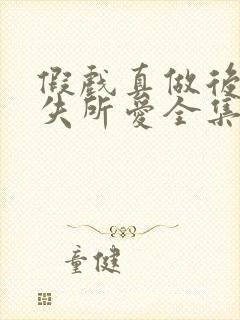 假戲真做後
失所愛全集
童健